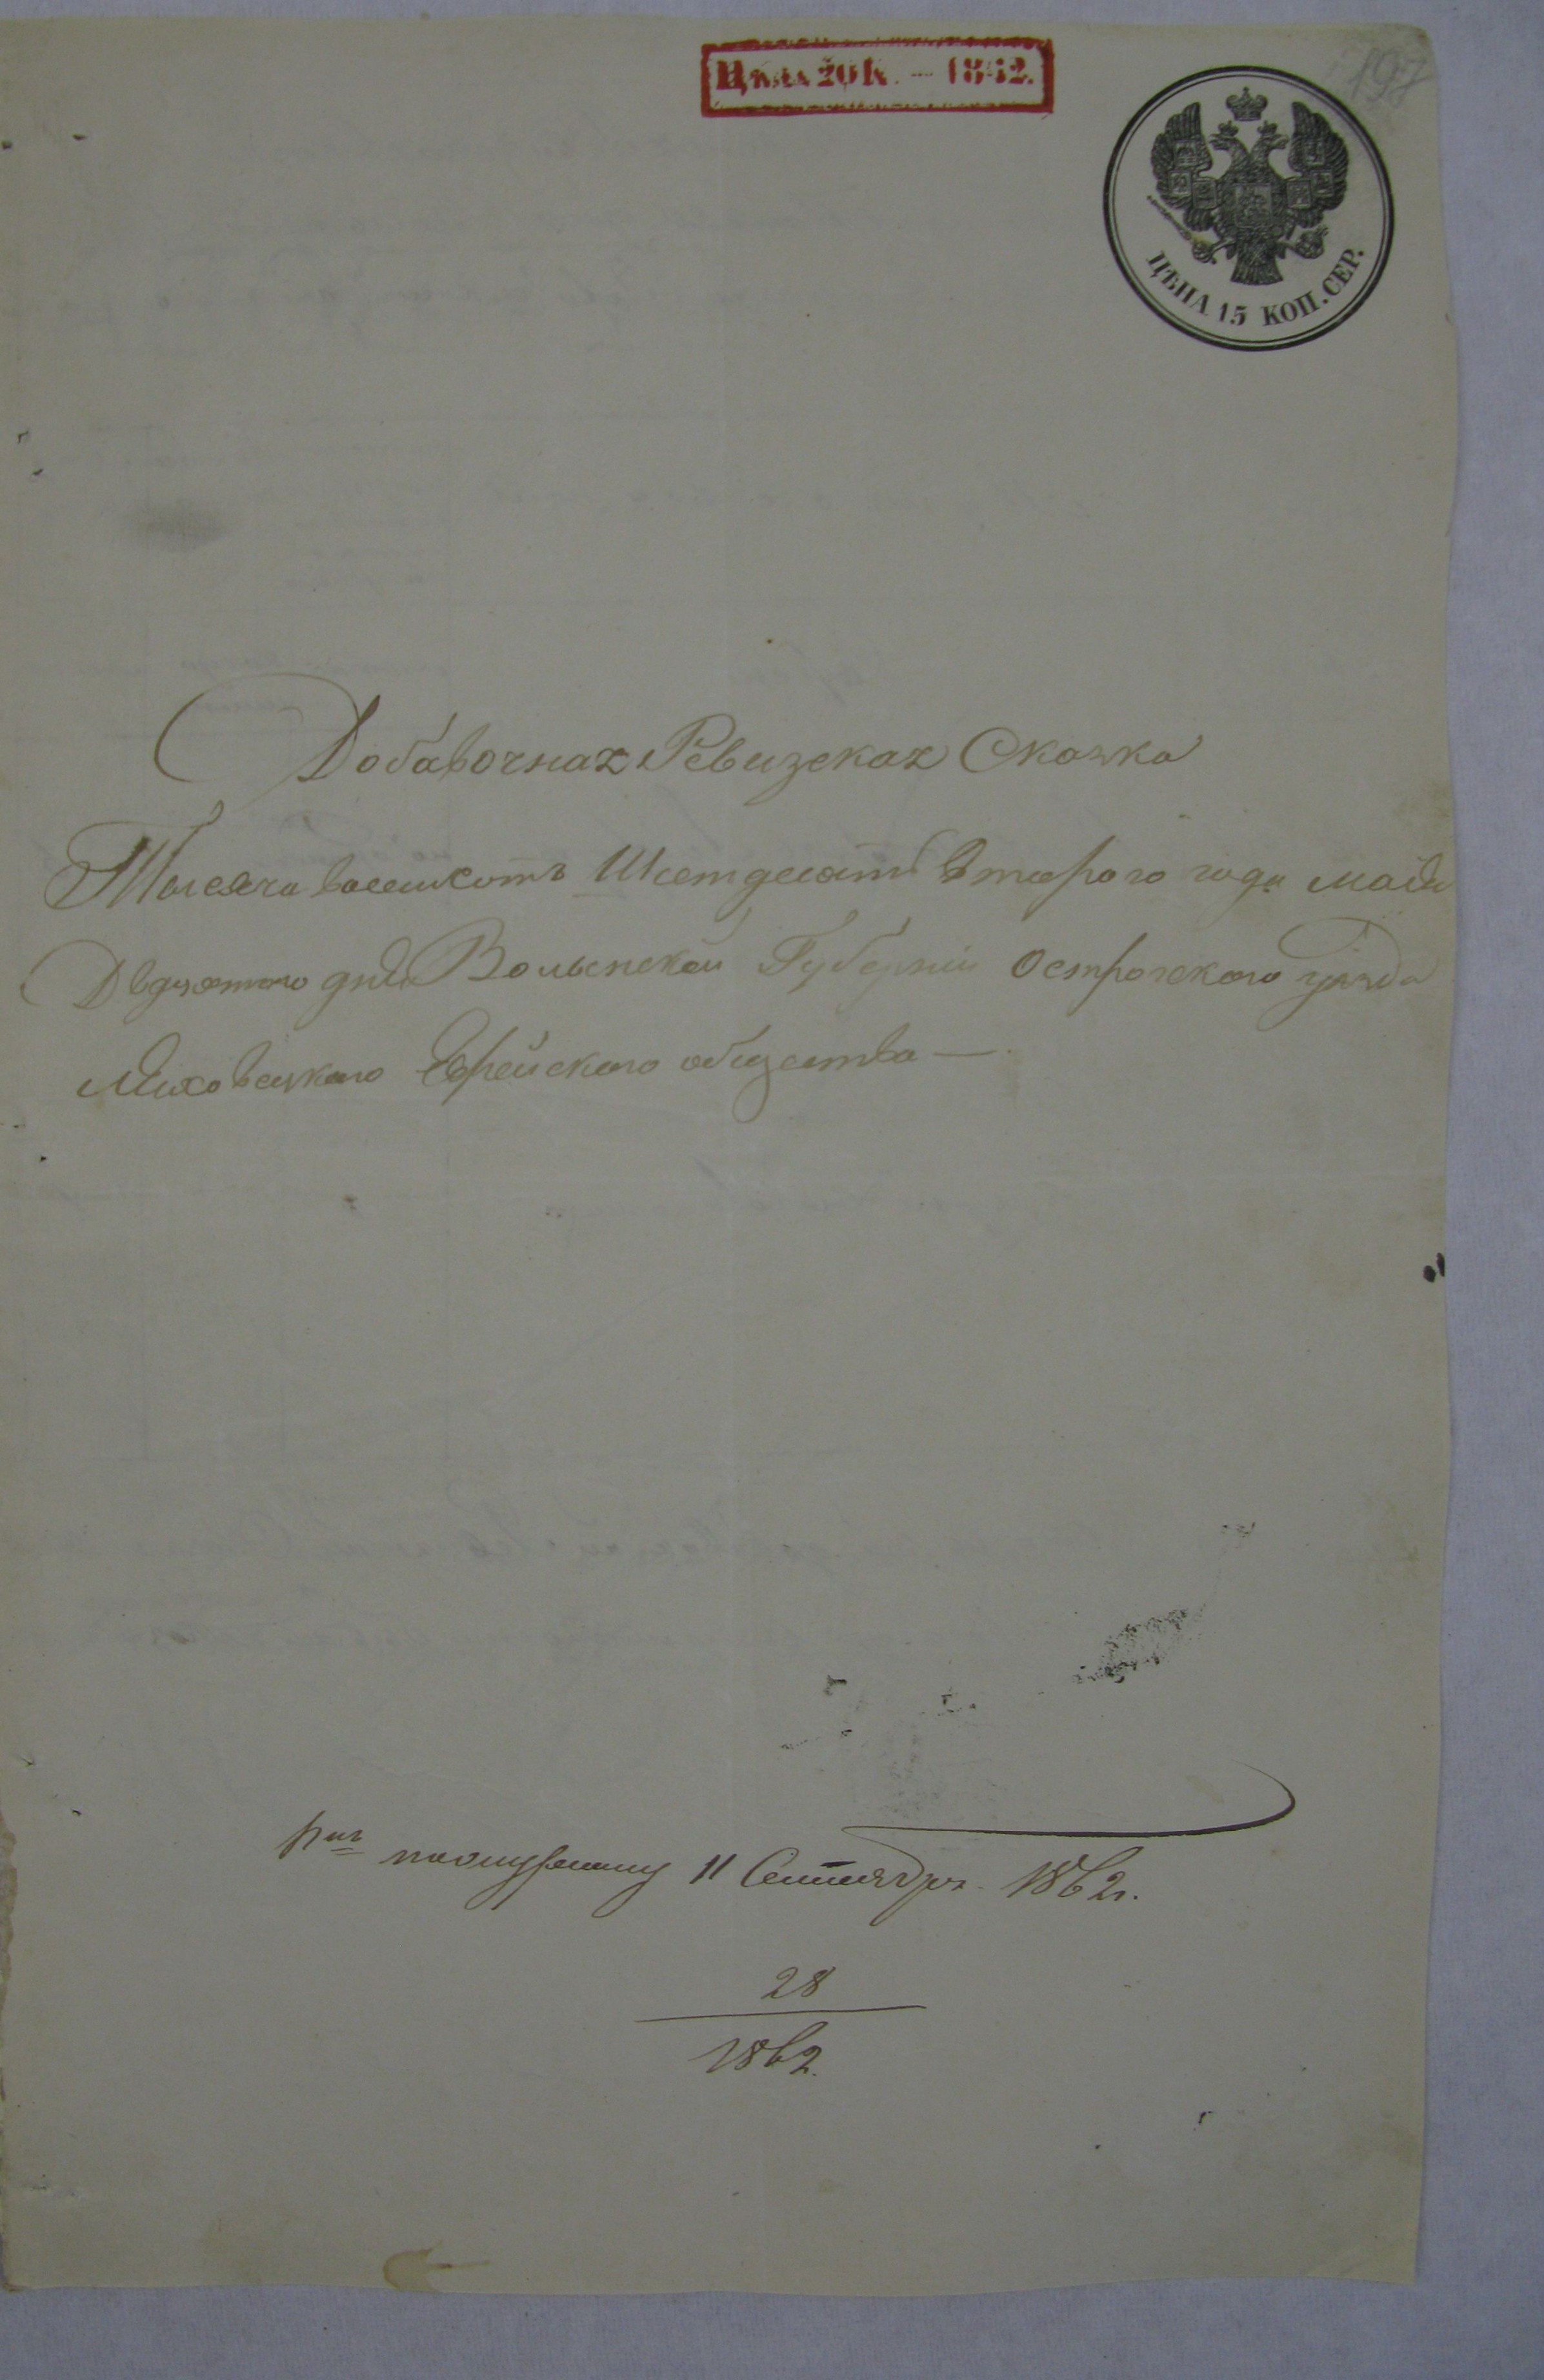 Цѣна 20 К. — 1862.
197
ЦѢНА 15 КОП. СЕР.
Добавочная Ревизская Сказка
Тысяча восемсотъ Шестдесятъ Втораго года мая
Двдцатого дня Волынской Губерніи Острогскаго уѣзда
Ляховецкаго Еврейского общества —.
11 Сентября 1862г.
28
1862.